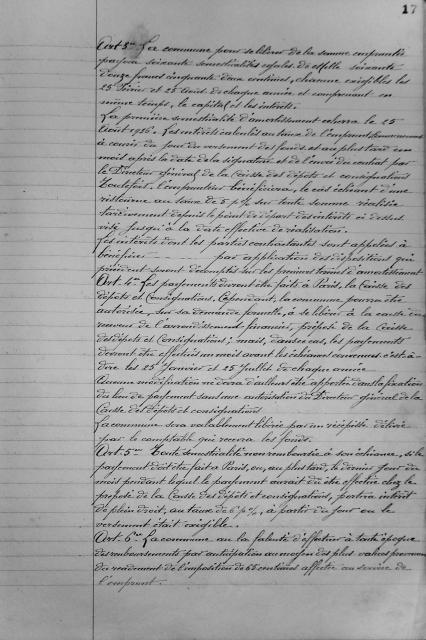 17
Art 3me La commune pour se libérer de la somme empruntée
paiera soixante semestialités égales de
douze francs cinquante deux centimes, chacune exigibles les
25 Février et 25 Août de chaque année et comprenant en
même temps, le capital et les intérêts.
La première semestrialité d'amortissement écherra le 25
Août 1926. Les intérêts calculés au taux de l'emprunt
à courir du jour du versement des fonds et au plus tard un
mois après la date de la signature et de l'envoi du contrat par
le Directeur général de la Caisse des dépôts et consignations
Toutefois l'emprunteur bénéficiera, le cas échéant d'une
ristourne au taux de 5 p % sur toute somme réalisée
tardivement depuis le point de départ des intérêts ci dessus
visé jusqu'à la date effective de réalisation.
Les intérêts dont les parties contractantes sont appelées à
bénéficier par application des dispositions qui
précèdent seront décomptés sur les premiers termes d'amortissement
Art. 4e Les payements devront être faits à Paris, la Caisse des
dépôts et Consignations, Cependant, la commune pourra être
autorisée, sur sa demande formelle, à se libérer à la caisse du
receveur de l'arrondissement financier, préposé de la Caisse
des dépôts et Consignations; mais, dans ce cas, les payements
devront être effectués un mois avant les échéances convenues c'est à
dire les 25 Janvier et 25 Juillet de chaque année
Aucune modification ne devra d'ailleurs être apportée dans la fixation
du lieu de payement sans une autorisation du Directeur général de la
Caisse des dépôts et consignations
La commune sera valablement libérée par un récépissé délivré
par le comptable qui recevra les fonds.
Art. 5me Toute semestrialité non remboursée à son échéance, si le
payement doit être fait à Paris, ou, au plus tard, le dernier jour du
mois pendant lequel le payement aurait dû être effectué chez le
préposé de la Caisse des dépôts et consignations, portera intérêt
de plein droit, au taux de 6 p %, à partir du jour où le
versement était exigible.
Art. 6e La commune au la faculté d'effectuer à toute époque
des remboursements par anticipation au moyen des plus values provenant
du rendement de l'imposition de 55 centimes affectée au service de
l'emprunt.